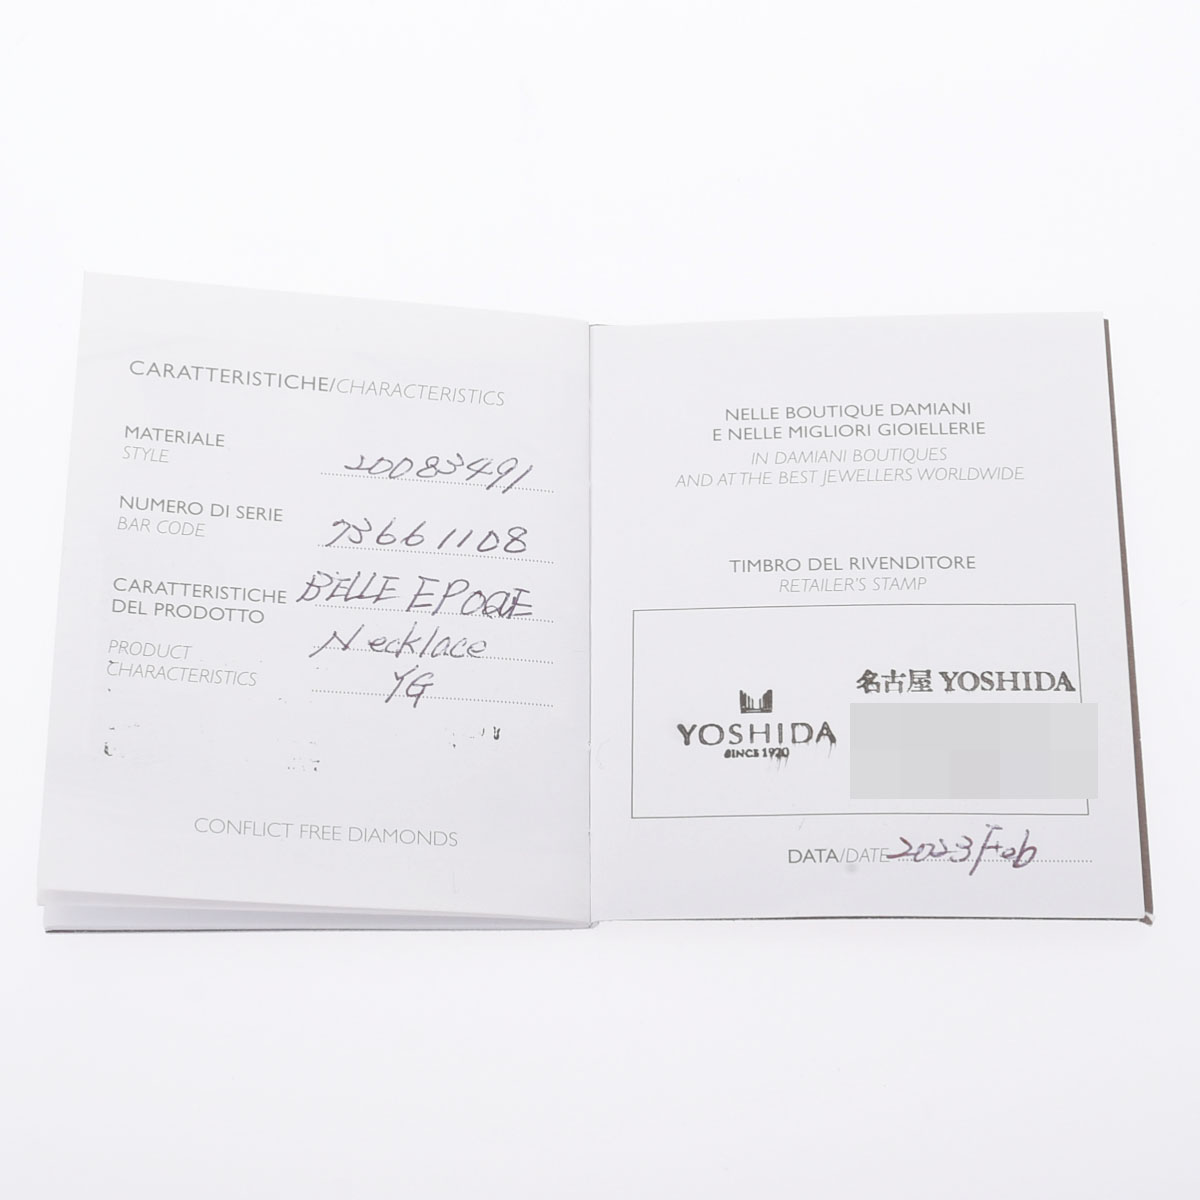 CARATTERISTICHE/CHARACTERISTICS
MATERIALE
STYLE
20083491
NUMERO DI SERIE
BAR CODE
73661108
CARATTERISTICHE
DEL PRODOTTO
BELLE EPOQUE
Necklace
PRODUCT
CHARACTERISTICS
YG
CONFLICT FREE DIAMONDS
NELLE BOUTIQUE DAMIANI
E NELLE MIGLIORI GIOIELLERIE
IN DAMIANI BOUTIQUES
AND AT THE BEST JEWELLERS WORLDWIDE
TIMBRO DEL RIVENDITORE
RETAILER'S STAMP
名古屋 YOSHIDA
YOSHIDA
SINCE 1920
DATA/DATE 2023 Feb